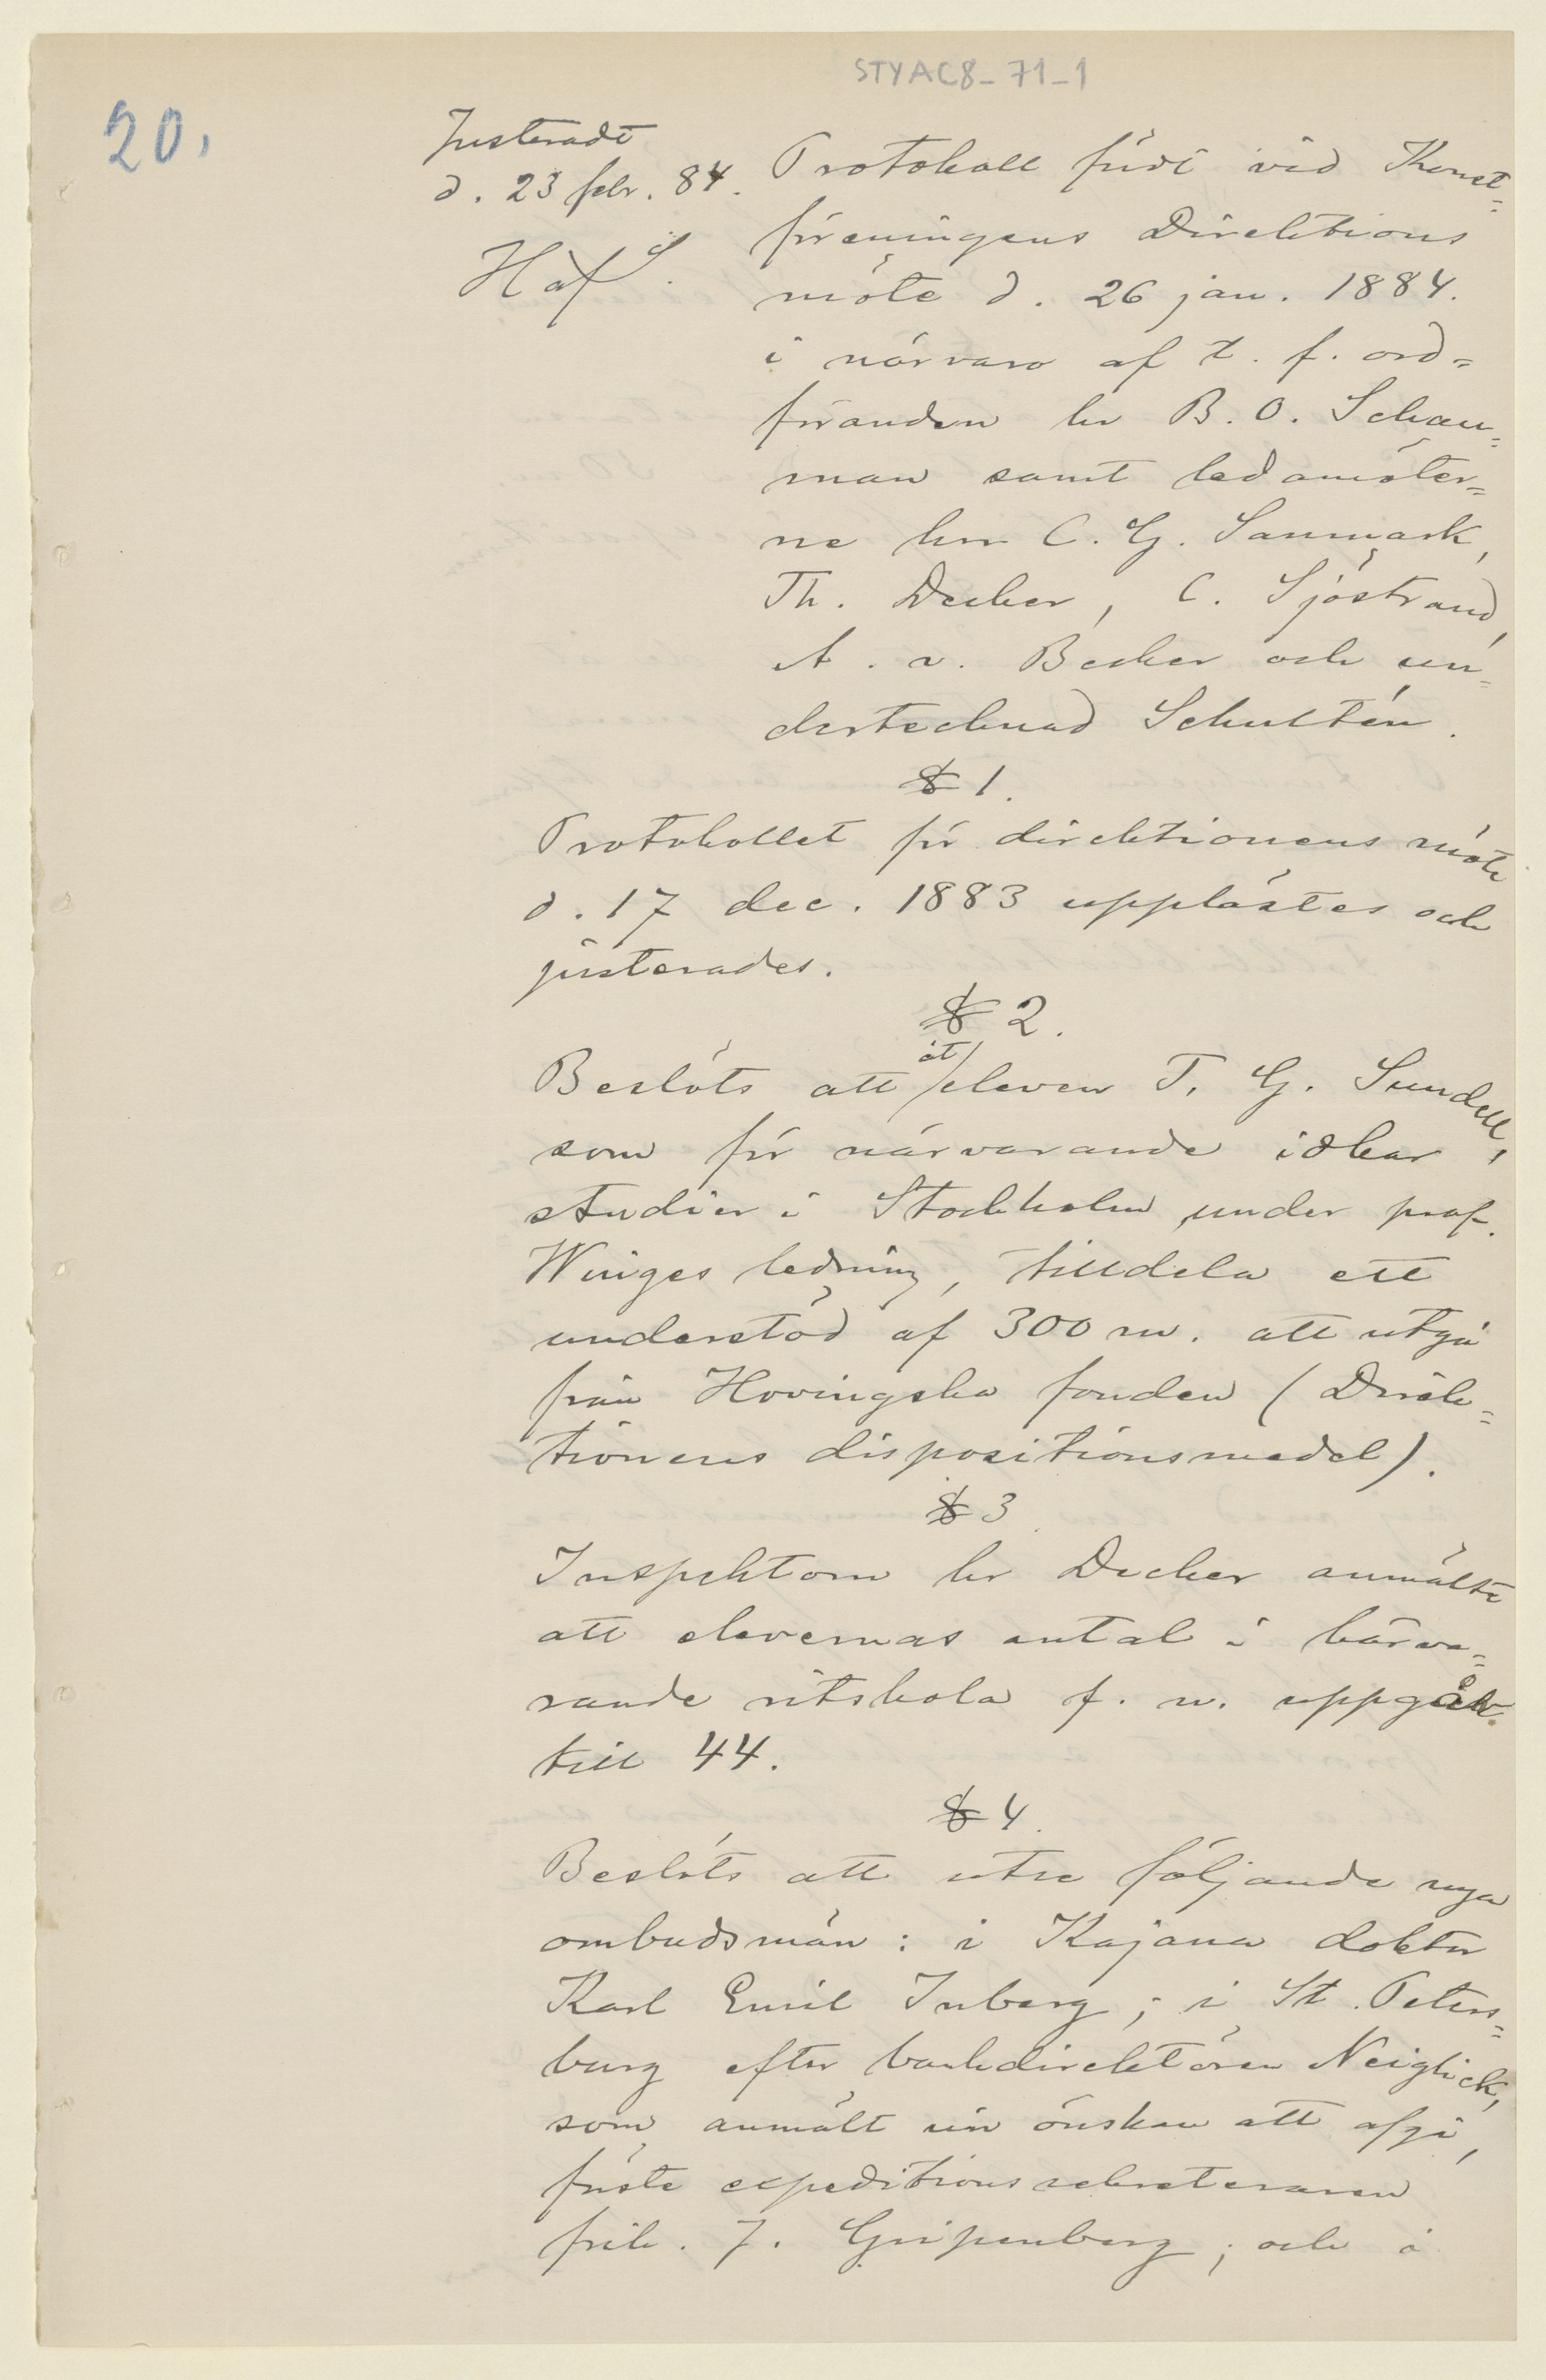 STYAC8_71_1
20.
Justeradt
d. 23 febr. 84.
Protokoll fördt vid Konst=
föreningens Direktions
möte d. 26 jan. 1884.
i närvaro af t. f. ord=
föranden hr B. O. Schau=
man samt ledamöter=
ne hrr C. G. Sanmark,
Th. Decker, C. Sjöstrand,
A. v. Becker och un=
dertecknad Schultén.
§ 1.
Protokollet för direktionens möte
d. 17 dec. 1883 upplästes och
justerades.
§ 2.
Beslöts att åt eleven T. G. Sundell,
som för närvarande idkar
studier i Stockholm under prof.
Winges ledning, tilldela ett
understöd af 300 m. att utgå
från Hovingska fonden (Direk=
tionens dispositionsmedel).
§ 3.
Inspektorn hr Decker anmälte
att elevernas antal i härva=
rande ritskola f. n. uppgår
till 44.
§ 4.
Beslöts att utse följande nya
ombudsmän: i Kajana doktor
Karl Emil Inberg; i St. Peters=
burg efter bankdirektören Neiglick,
som anmält sin önskan att afgå,
förste expeditionssekreteraren
frih. J. Gripenberg; och i